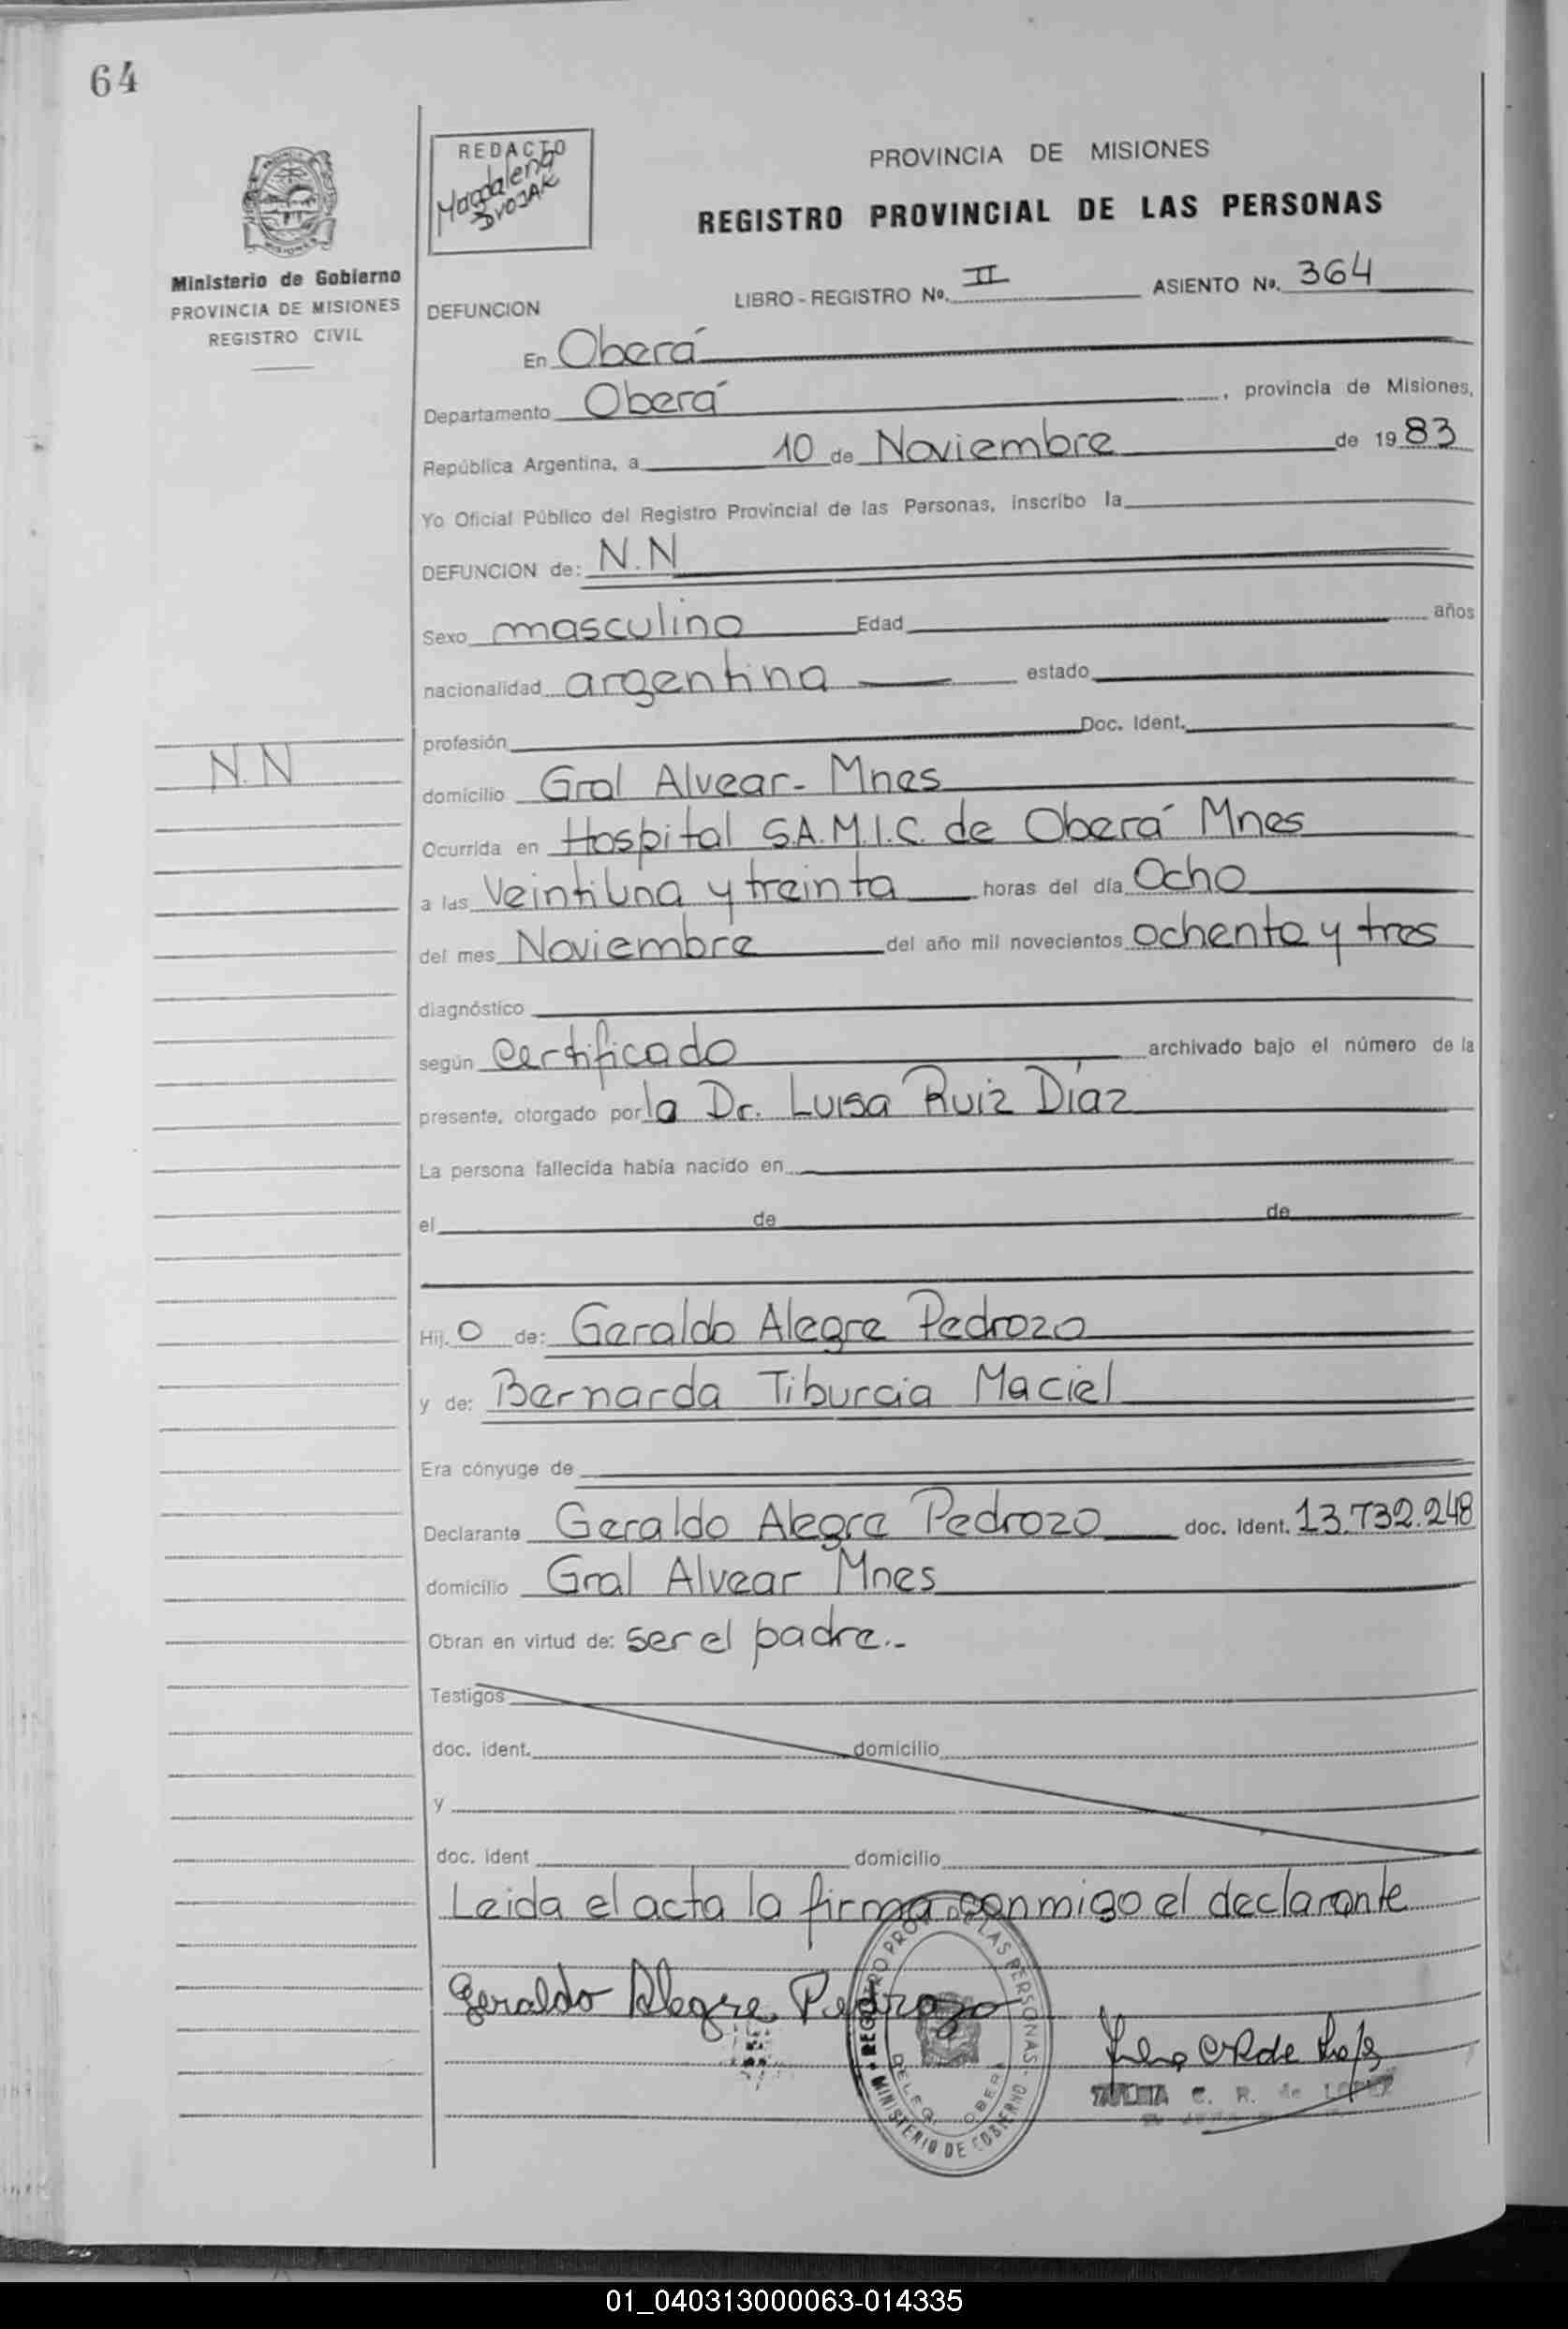 64
REDACTO
Magdalena
DVOJAK
PROVINCIA DE MISIONES
REGISTRO PROVINCIAL DE LAS PERSONAS
Ministerio de Gobierno
PROVINCIA DE MISIONES
REGISTRO CIVIL
DEFUNCION
LIBRO - REGISTRO Nº. II ASIENTO Nº. 364
En Oberá
Departamento Oberá, provincia de Misiones,
República Argentina, a 10 de Noviembre de 1983
Yo Oficial Público del Registro Provincial de las Personas, inscribo la
DEFUNCION de: N.N
Sexo masculino Edad años
nacionalidad argentina estado
profesión Doc. Ident.
N.N
domicilio Gral Alvear - Mnes
Ocurrida en Hospital S.A.M.I.C. de Oberá Mnes
a las Veintiuna y treinta horas del día Ocho
del mes Noviembre del año mil novecientos ochenta y tres
diagnóstico
según certificado archivado bajo el número de la
presente, otorgado por la Dr. Luisa Ruiz Díaz
La persona fallecida había nacido en
el de de
Hij o de: Geraldo Alegre Pedrozo
y de: Bernarda Tiburcia Maciel
Era cónyuge de
Declarante Geraldo Alegre Pedrozo doc. Ident. 13.732.248
domicilio Gral Alvear Mnes
Obran en virtud de: ser el padre.-
Testigos
doc. ident. domicilio
y
doc. ident domicilio
Leida el acta la firma conmigo el declarante
Geraldo Alegre Pedrozo
REGISTRO PROV. DE LAS PERSONAS
DELEG. OBERA
MINISTERIO DE GOBIERNO
C. R. de
01_040313000063-014335